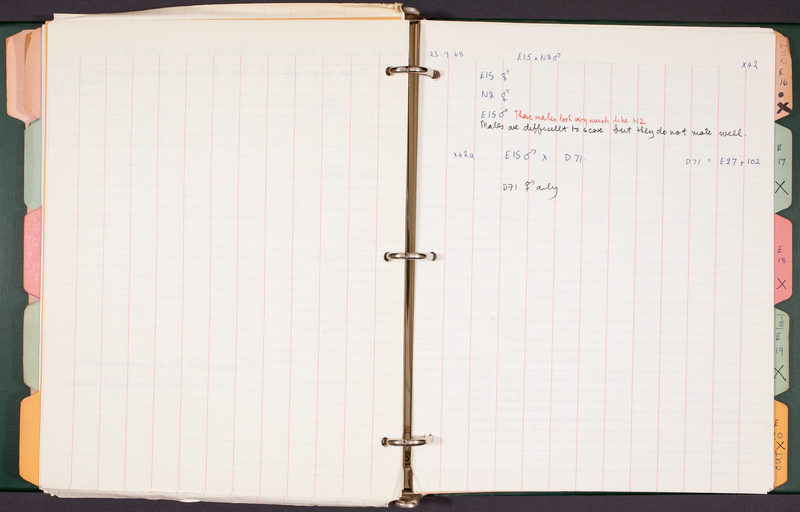 23.9.68 E15 x N2 ♂
X42
E15 ⚥
N2 ⚥
E15 ♂ These males look very much like N2
Males are difficult to score but they do not mate well.
X42a E15 ♂ x D71 D71 = E27 + 102
D71 ⚥ only
OUT
E
16
X
E
17
X
E
18
X
E
19
X
E
X
OUT